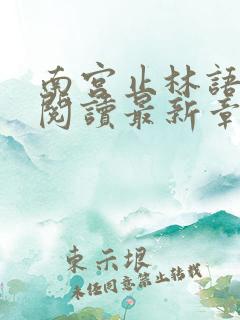 南宮止林語
閱讀最新章
東示垠
未经同意禁止转载